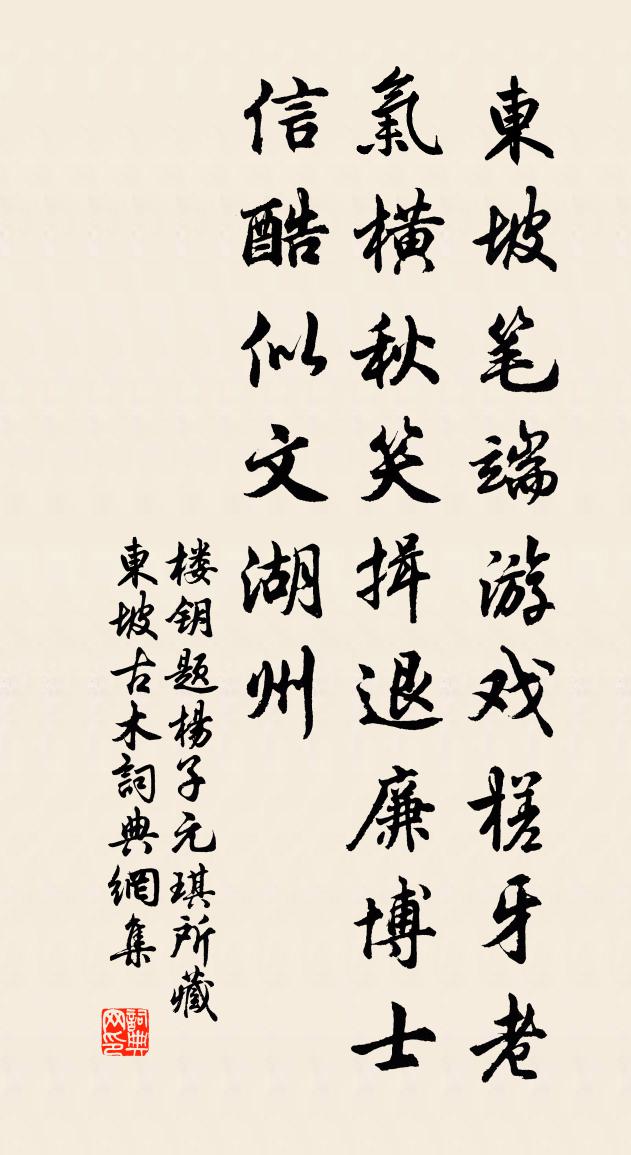 東坡笔端游戏槎牙老
氣橫秋笑揖退廉博士
信酷似文湖州
楼钥题楊子元琪所藏
東坡古木詞典網集
詞典
网印